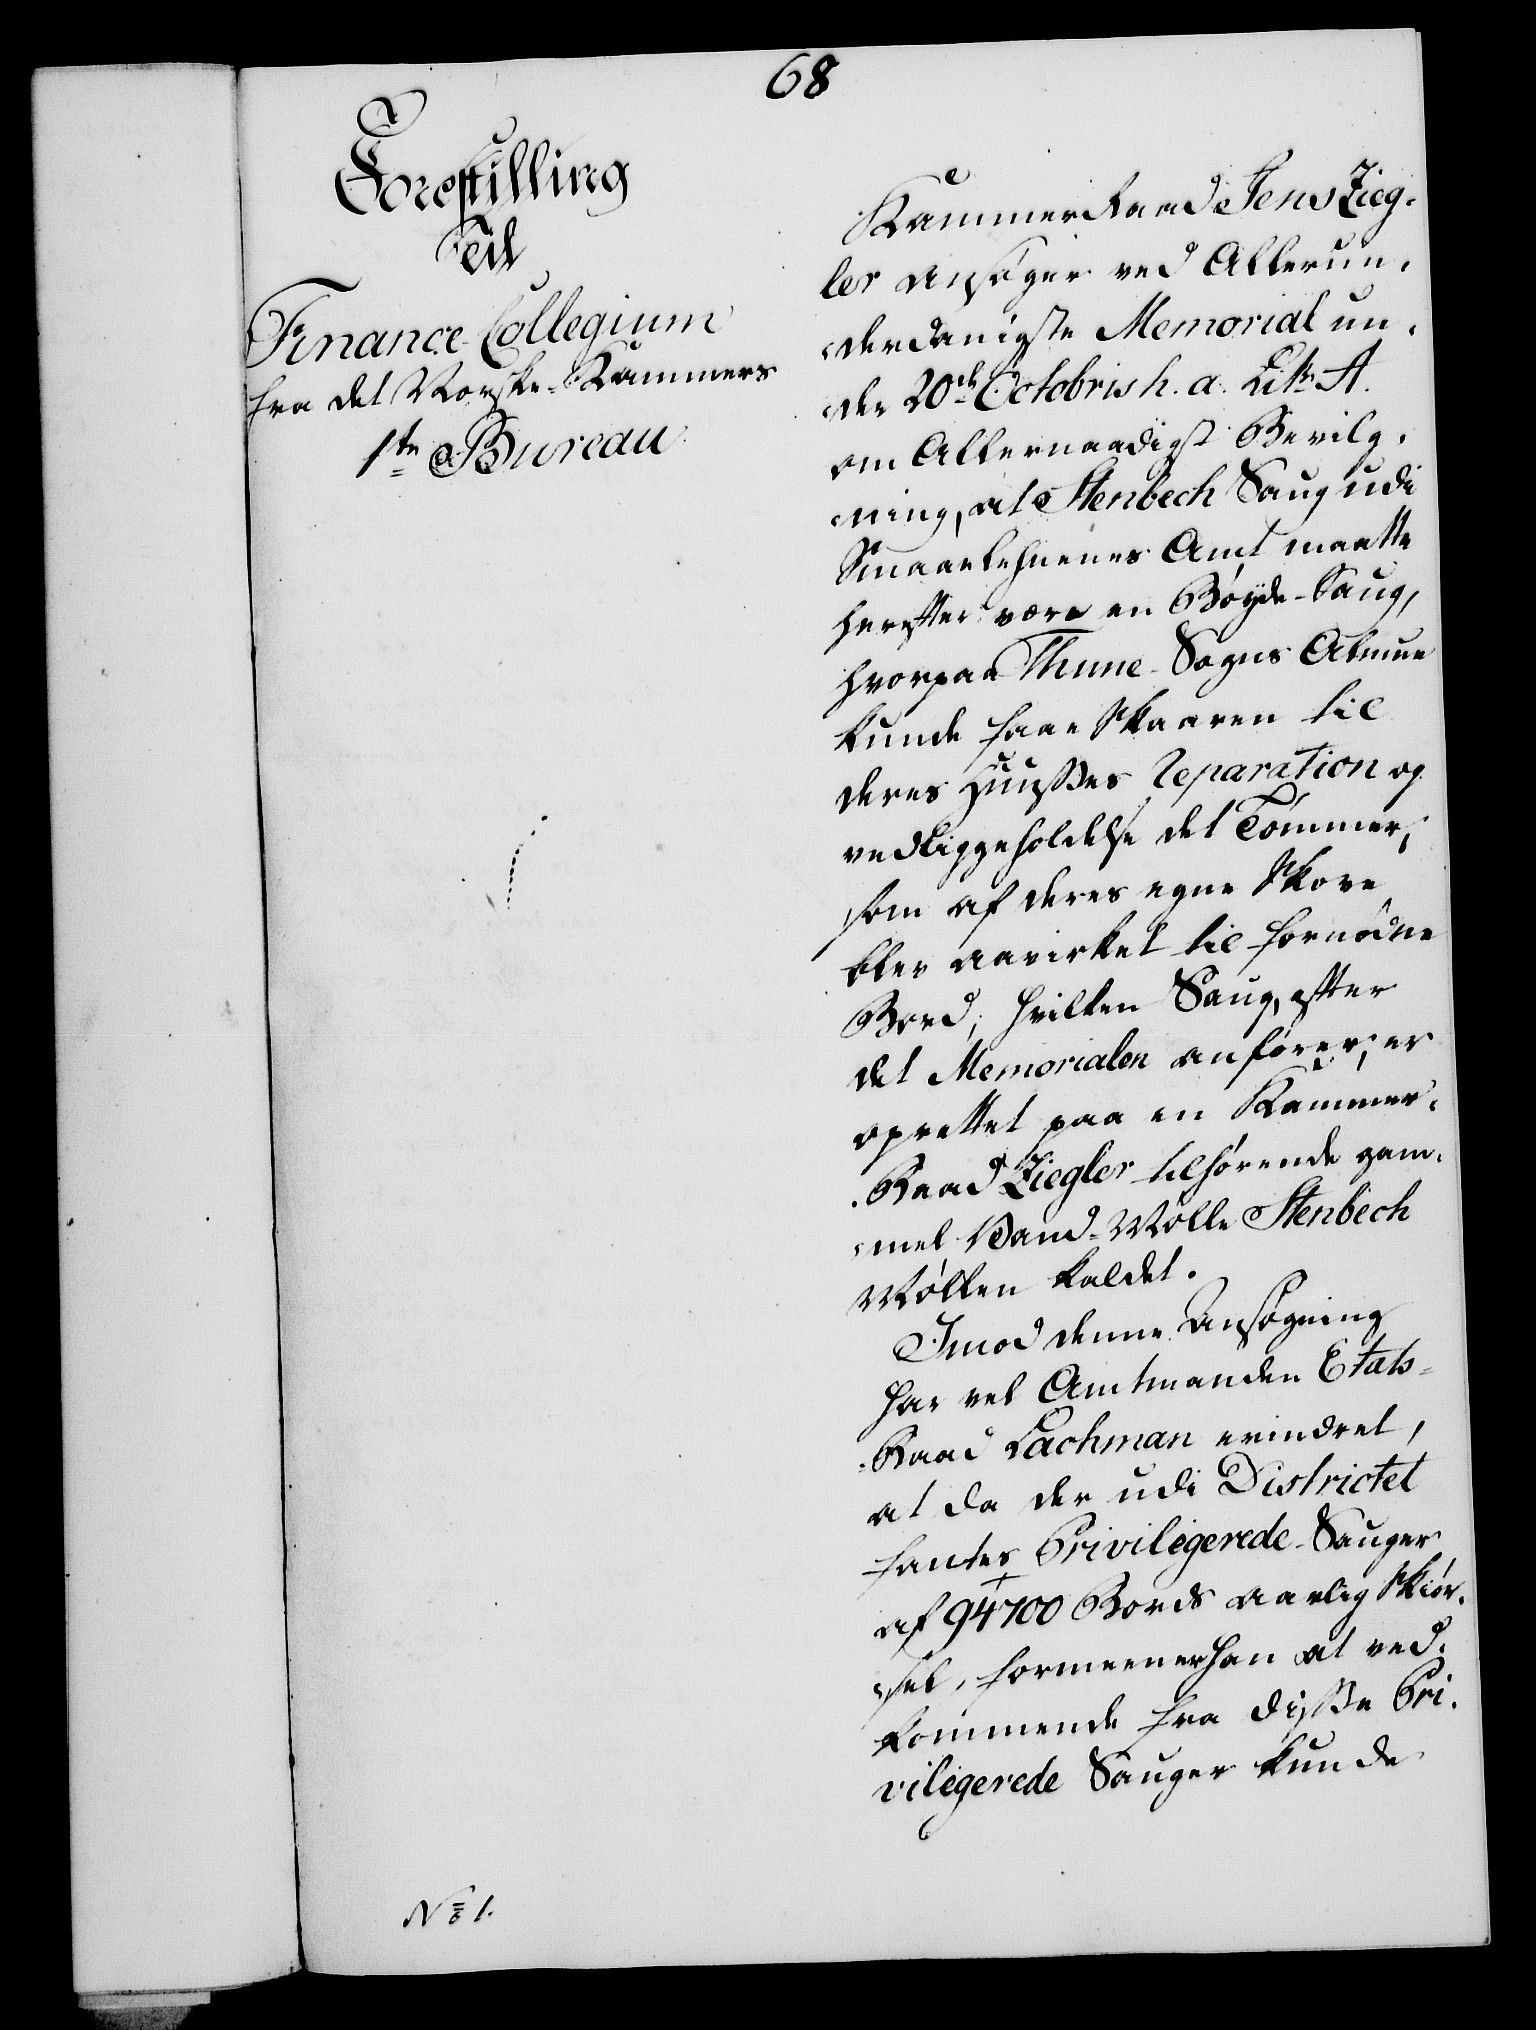 68
Forestilling
Til
Finance-Collegium
fra det Norske-Kammers
1ste Bureau
KammerRaad Jens Zieg-
ler ansøger ved Allerun-
derdanigste Memorial un-
der 20de Octobris h. a. Litr. A.
om Allernaadigst Bevilg-
ning, at Stenbech Saug udi
Smaalehnenes Amt maatte
herefter være en Bøyde-Saug,
hvorpaa Thune-Sogns Almue
kunde faae Skaaren til
deres Huusses Reparation og
vedligeholdelse det Tømmer,
som af deres egne Skove
blev aavirket til fornødne
Bord, hvilken Saug, efter
det Memorialen anfører, er
oprettet paa en Kammer-
Raad Ziegler tilhørende gam-
mel Vand-Mølle Stenbech
Møllen kaldet.
Imod denne Ansøgning
har vel Amtmanden Etats-
Raad Lachman erindret,
at da der udi Districtet
fantes Priviligerede-Sauger
af 94700 Bords aarlig Skiør-
sel, formeener han at ved-
kommende fra disse Pri-
viligerede Sauger kunde
No 1.